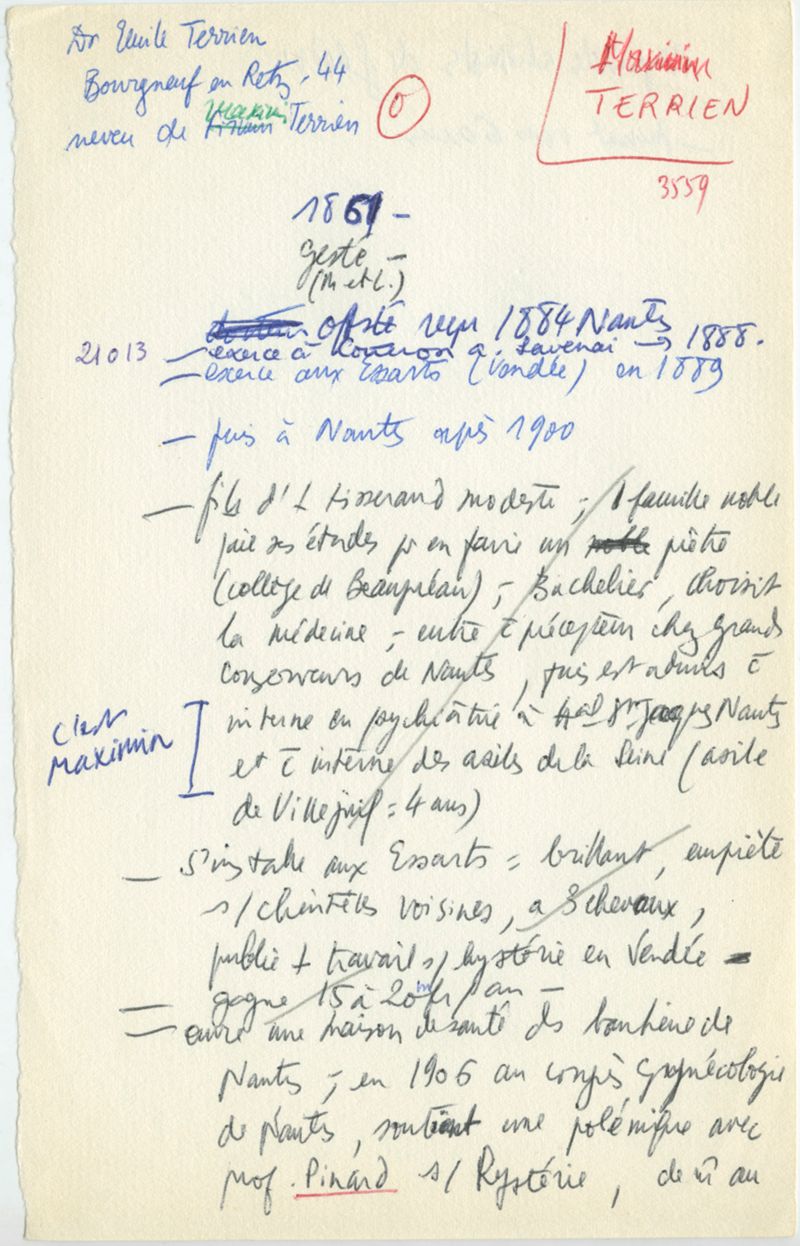 Dr Emile Terrien
Bourgneuf en Retz. 44
neveu de Maximin Terrien
O
Maximin
TERRIEN
3559
1861 –
Gesté –
(M et L.)
offsté reçu 1884 Nantes
21013
– exerce à Couëron a. Savenai → 1888.
– exerce aux Essarts (Vendée) en 1889
– puis à Nantes après 1900
– fils d'1 tisserand modeste ; 1 famille noble
paie ses études pr en faire un prêtre
(collège de Beaupréau) ; – Bachelier, choisit
la médecine ; – entre c̄ précepteur chez grands
conserveurs de Nantes, puis est admis c̄
interne en psychiâtrie à St Jacques Nantes
et c̄ interne des asiles de la Seine (asile
de Villejuif = 4 ans)
C'est
MAXIMIN
– s'installe aux Essarts = brillant, empiète
s/ clientèles voisines, a 3 chevaux,
publie 1 travail s/ hystérie en Vendée –
gagne 15 à 20 m fr / an –
= ouvre une maison de santé ds banlieue de
Nantes ; – en 1906 au congrès gynécologie
de Nantes, soutient une polémique avec
prof. Pinard s/ Hystérie, de m̄ au